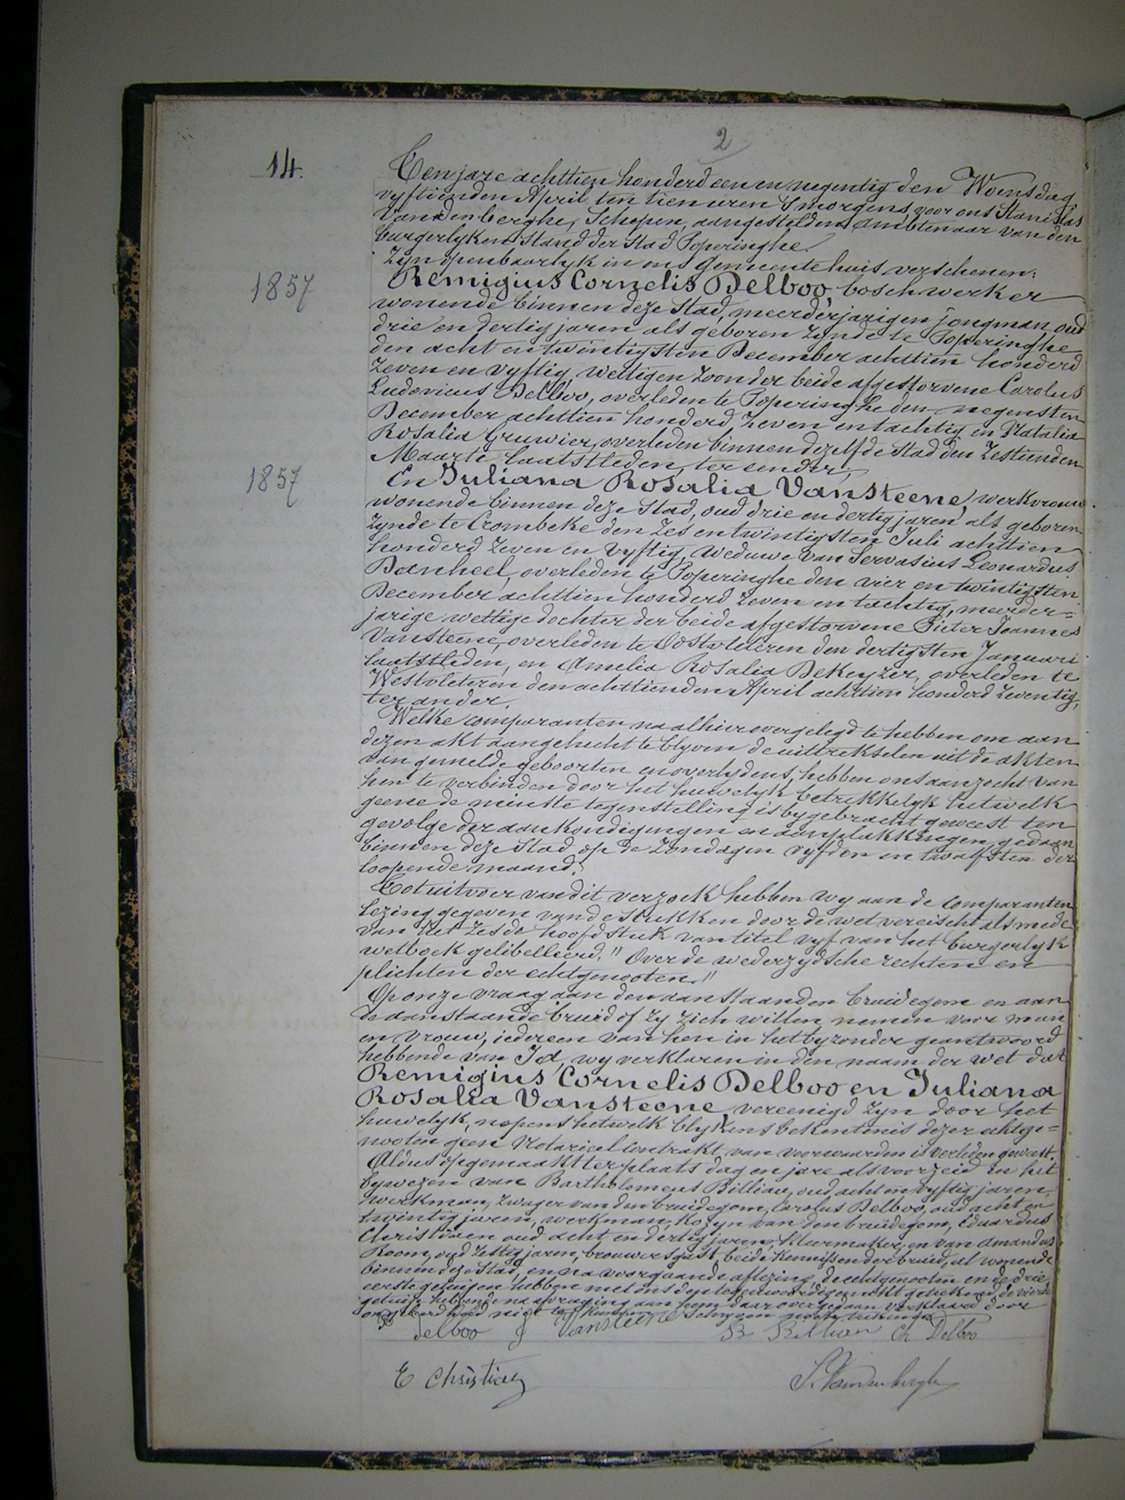 2
14.
Ten jare achttien honderd een en negentig den Woensdag
vyftienden April ten tien uren 's morgens, voor ons Stanislas
Vandenberghe, Schepen, aangestelden Ambtenaar van den
burgerlyken Stand der Stad Poperinghe.
Zyn openbaarlyk in ons gemeentehuis verschenen:
1857
Remigius Cornelis Delboo, boschwerker
wonende binnen deze Stad, meerderjarigen jongman, oud
drie en dertig jaren als geboren zynde te Poperinghe
den acht en twintigsten December achttien honderd
zeven en vyftig, wettigen zoon der beide afgestorvene Carolus
Ludovicus Delboo, overleden te Poperinghe den negensten
December achttien honderd zeven en tachtig en Natalia
Rosalia Gruwier, overleden binnen dezelfde Stad den zestienden
Maarte laatstleden, ter eender,
1857
En Juliana Rosalia Vansteene, werkvrouw
wonende binnen deze Stad, oud drie en dertig jaren, als geboren
zynde te Crombeke den zes en twintigsten Juli achttien
honderd zeven en vyftig, weduwe van Servasius Leonardus
Danheel, overleden te Poperinghe den vier en twintigsten
December achttien honderd zeven en tachtig, meerder=
jarige wettige dochter der beide afgestorvene Pieter Joannes
Vansteene, overleden te Oostvleteren den dertigsten Januari
laatstleden, en Amelia Rosalia DeKeyzer, overleden te
Westvleteren den achttienden April achttien honderd zeventig,
ter ander.
Welke comparanten na alhier overgelegd te hebben om aan
dezen akt aangehecht te blyven de uittrekselen uit de akten
van gemelde geboorten en overlydens, hebben ons aanzocht van
hen te verbinden door het huwelyk betrekkelyk hetwelk
geene de minste tegenstelling is bygebracht geweest ten
gevolge der aankondigingen en aanplakkingen gedaan
binnen deze Stad op de Zondagen vyfden en twaalfsten der
loopende maand.
Tot uitvoer van dit verzoek hebben wy aan de comparanten
lezing gegeven van de stukken door de wet vereischt alsmede
van het zesde hoofdstuk van titel vyf van het burgerlyk
wetboek gelibelleerd: "Over de wederzydsche rechten en
plichten der echtgenooten."
Op onze vraag aan den aanstaanden bruidegom en aan
de aanstaande bruid of zy zich willen nemen voor man
en vrouw, iedereen van hen in het byzonder geantwoord
hebbende van Ja, wy verklaren in den naam der wet dat
Remigius Cornelis Delboo en Juliana
Rosalia Vansteene, vereenigd zyn door het
huwelyk, nopens hetwelk blykens bekentenis dezer echtge=
nooten geen Notarieel contrakt van voorwaarden is verleden geweest.
Aldus opgemaakt ter plaats dag en jare als voorzeid in het
bywezen van Bartholomeus Billiau, oud acht en vyftig jaren,
werkman, zwager van den bruidegom, Carolus Delboo, oud acht en
twintig jaren, werkman, kozyn van den bruidegom, Eduardus
Christiaen oud acht en dertig jaren, kleermaker, en van Amandus
Room, oud zestig jaren, brouwersgast, beide kennissen der bruid, al wonende
binnen deze Stad, en na voorgaande aflezing, de echtgenooten en de drie
eerste getuigen hebben met ons dezen akt geteekend, de vierde
getuige hebbende na afvraging aan hem daarover gedaan verklaard door
ongeleerdheid niet te kunnen schryven noch teekenen.
R Delboo J Vansteene B Billiau Ch Delboo
E Christiaen S. Vandenberghe